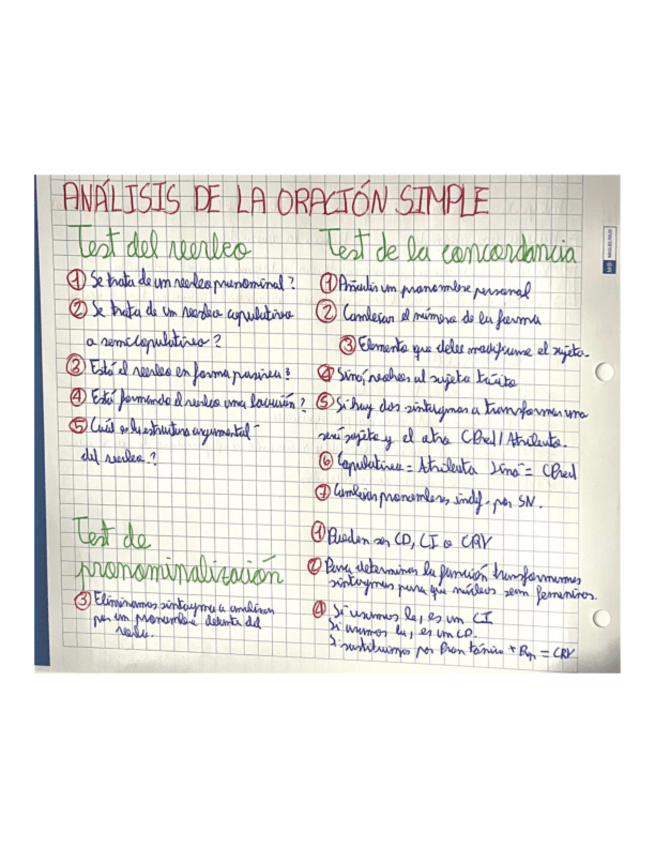 ANÁLISIS DE LA ORACIÓN SIMPLE
Test del núcleo
① Se trata de un núcleo pronominal?
② Se trata de un núcleo copulativo
o semicopulativo?
③ Está el núcleo en forma pasiva?
④ Está formando el núcleo una locución?
⑤ Cuál es la estructura argumental
del núcleo?
Test de la concordancia
① Añadir un pronombre personal
② Cambiar el número de la forma
③ Elemento que debe modificarse el sujeto.
④ Sino, sujeto tácito
⑤ Si hay dos sintagmas a transformar uno
será sujeto y el otro CPred/Atributo.
⑥ Copulativa = Atributo Sino = CPred
⑦ Cambiar pronombres indf. por SN.
Test de
pronominalización
① Pueden ser CD, CI o CRV
② Para determinar la función transformamos
sintagmas para que núcleos sean femeninos.
③ Eliminamos sintagma a analizar
por un pronombre delante del
④ Si usamos le, es un CI
Si usamos la, es un CD.
Si sustituimos por Pron tónico + = CRV